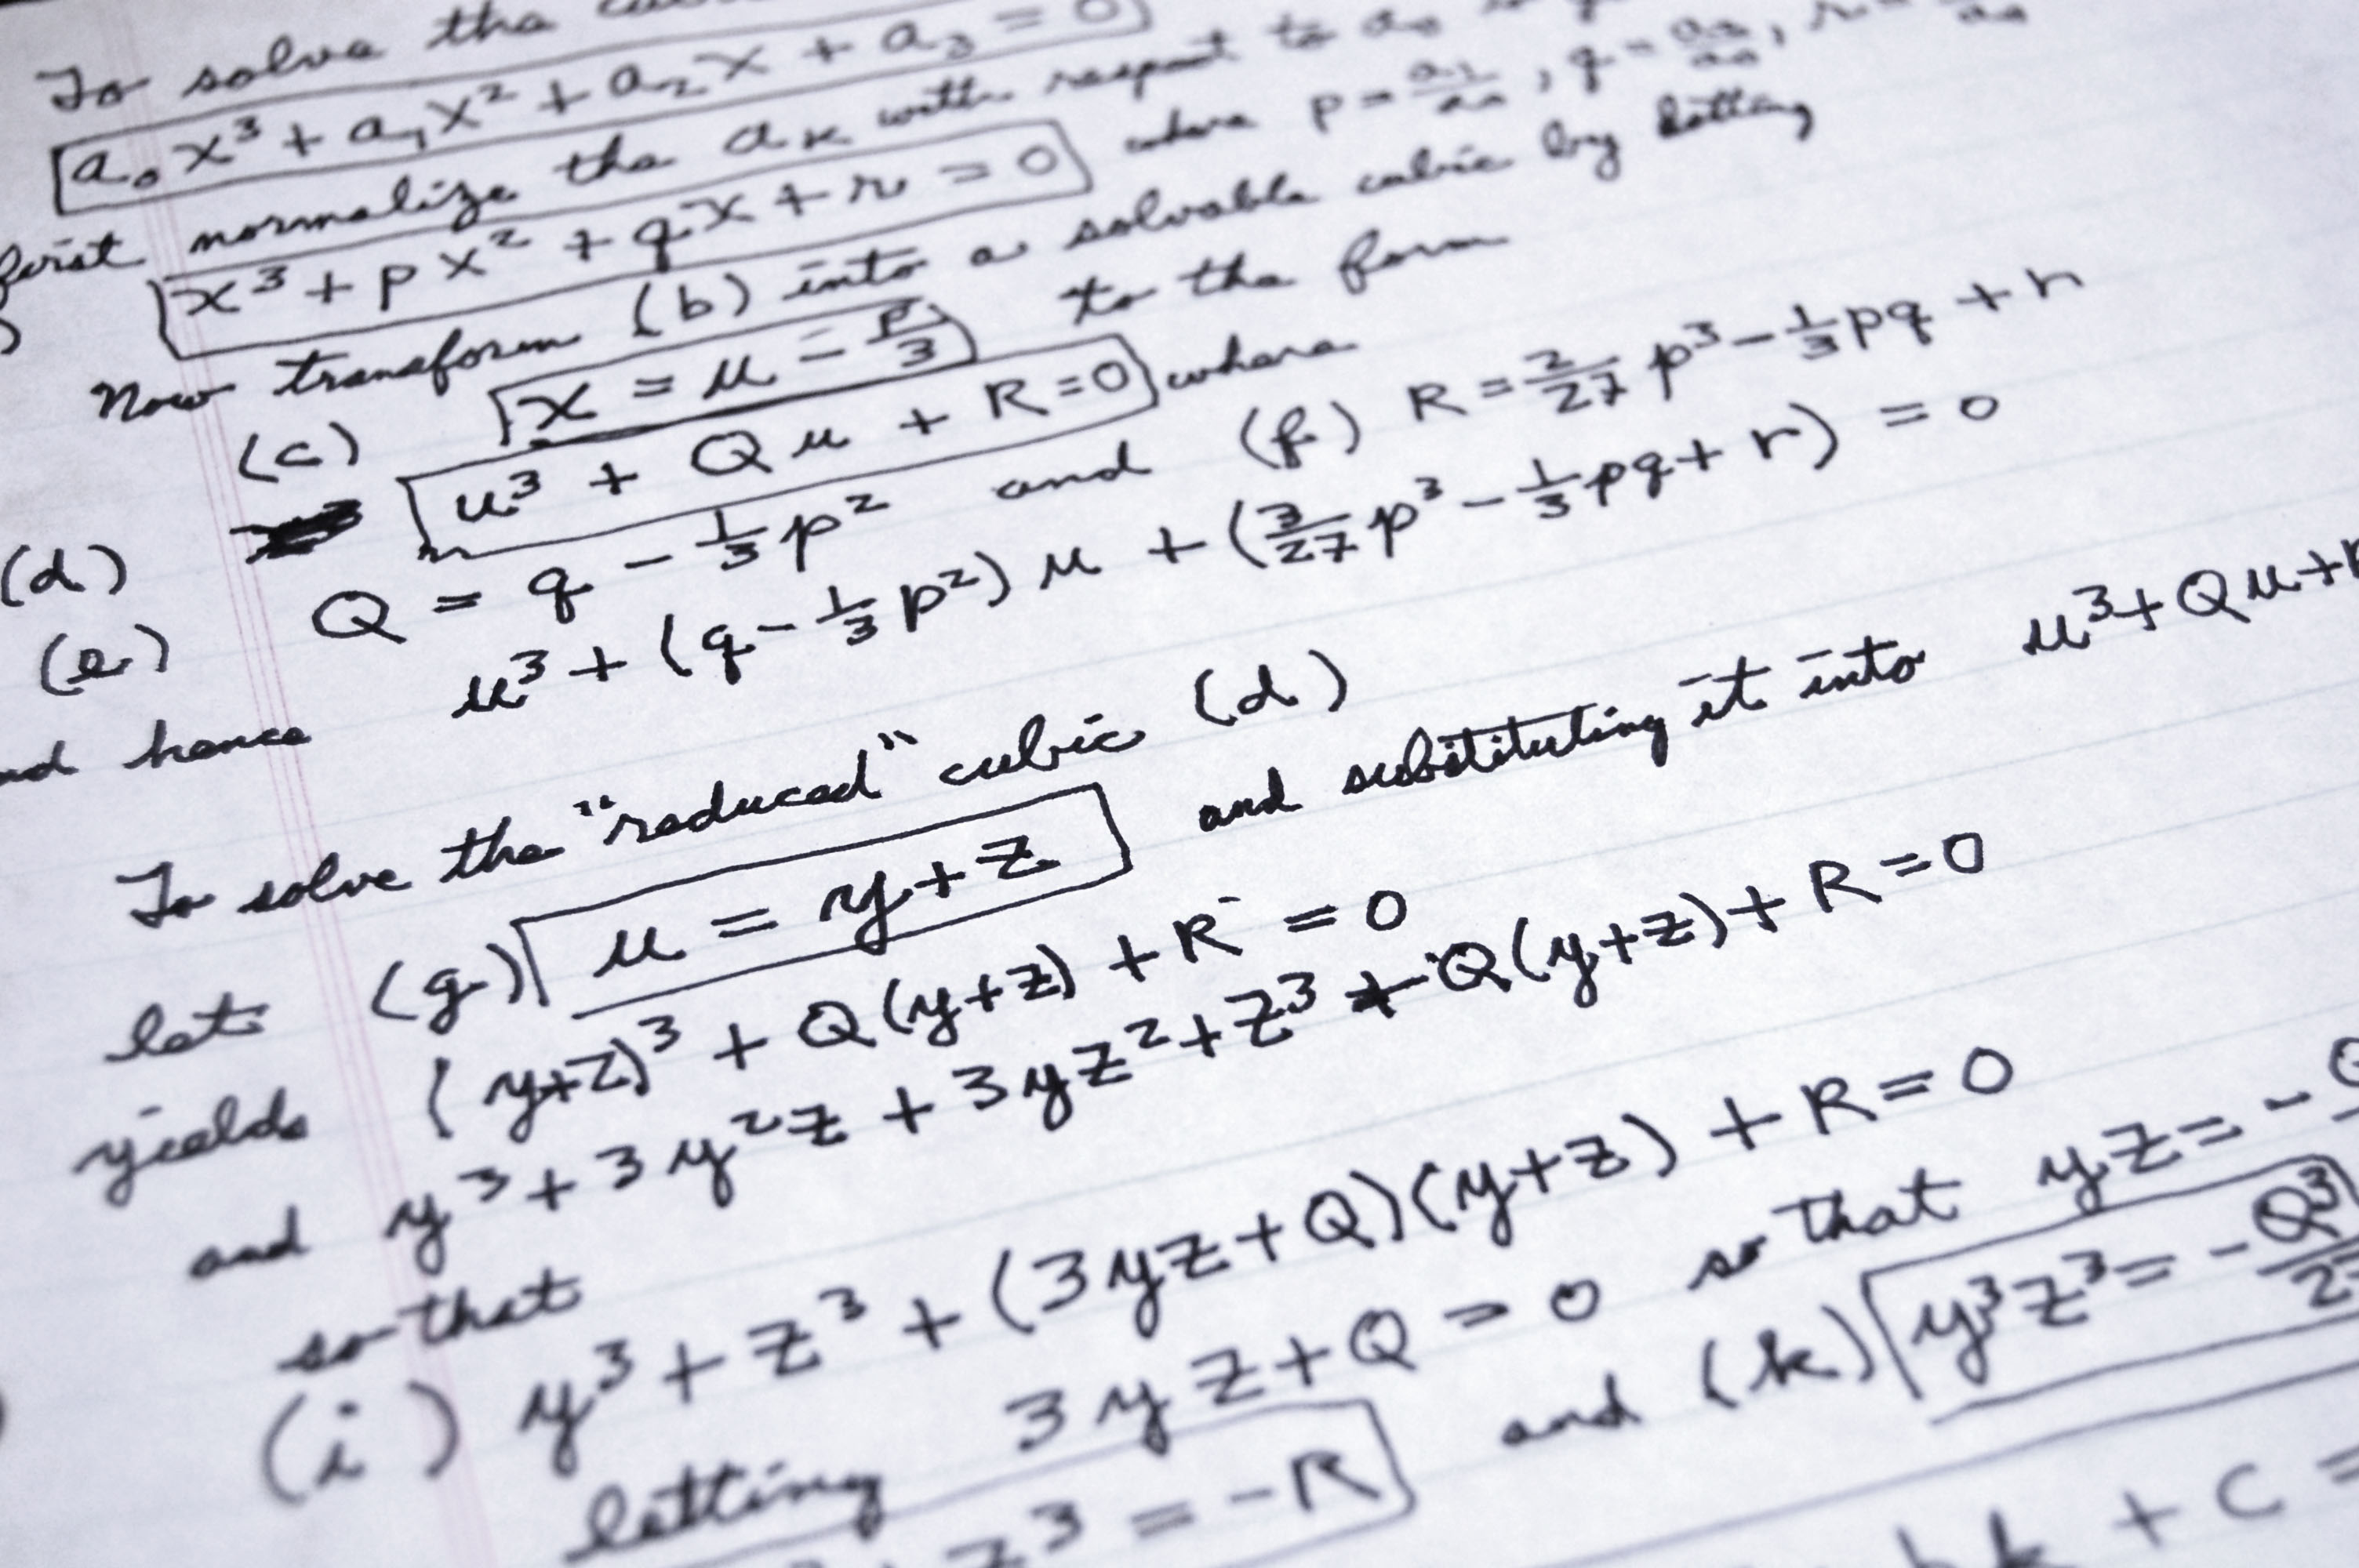 To solve the
a₀x³ + a₁x² + a₂x + a₃ = 0
first normalize the aₖ with respect to a₀
x³ + px² + qx + r = 0 where p = a₁/a₀, q = a₂/a₀, r =
Now transform (b) into a solvable cubic by letting
(c) x = u - p/3 to the form
(d) u³ + Qu + R = 0 where
(e) Q = q - 1/3 p² and (f) R = 2/27 p³ - 1/3 pq + r
hence u³ + (q - 1/3 p²) u + (3/27 p³ - 1/3 pq + r) = 0
To solve the "reduced" cubic (d)
let (g) u = y + z and substituting it into u³ + Qu +
yields (y+z)³ + Q(y+z) + R = 0
and y³ + 3y²z + 3yz² + z³ + Q(y+z) + R = 0
so that
(i) y³ + z³ + (3yz + Q)(y+z) + R = 0
letting 3yz + Q = 0 so that yz = -
z³ = -R and (k) y³z³ = - Q³/2
+ c =